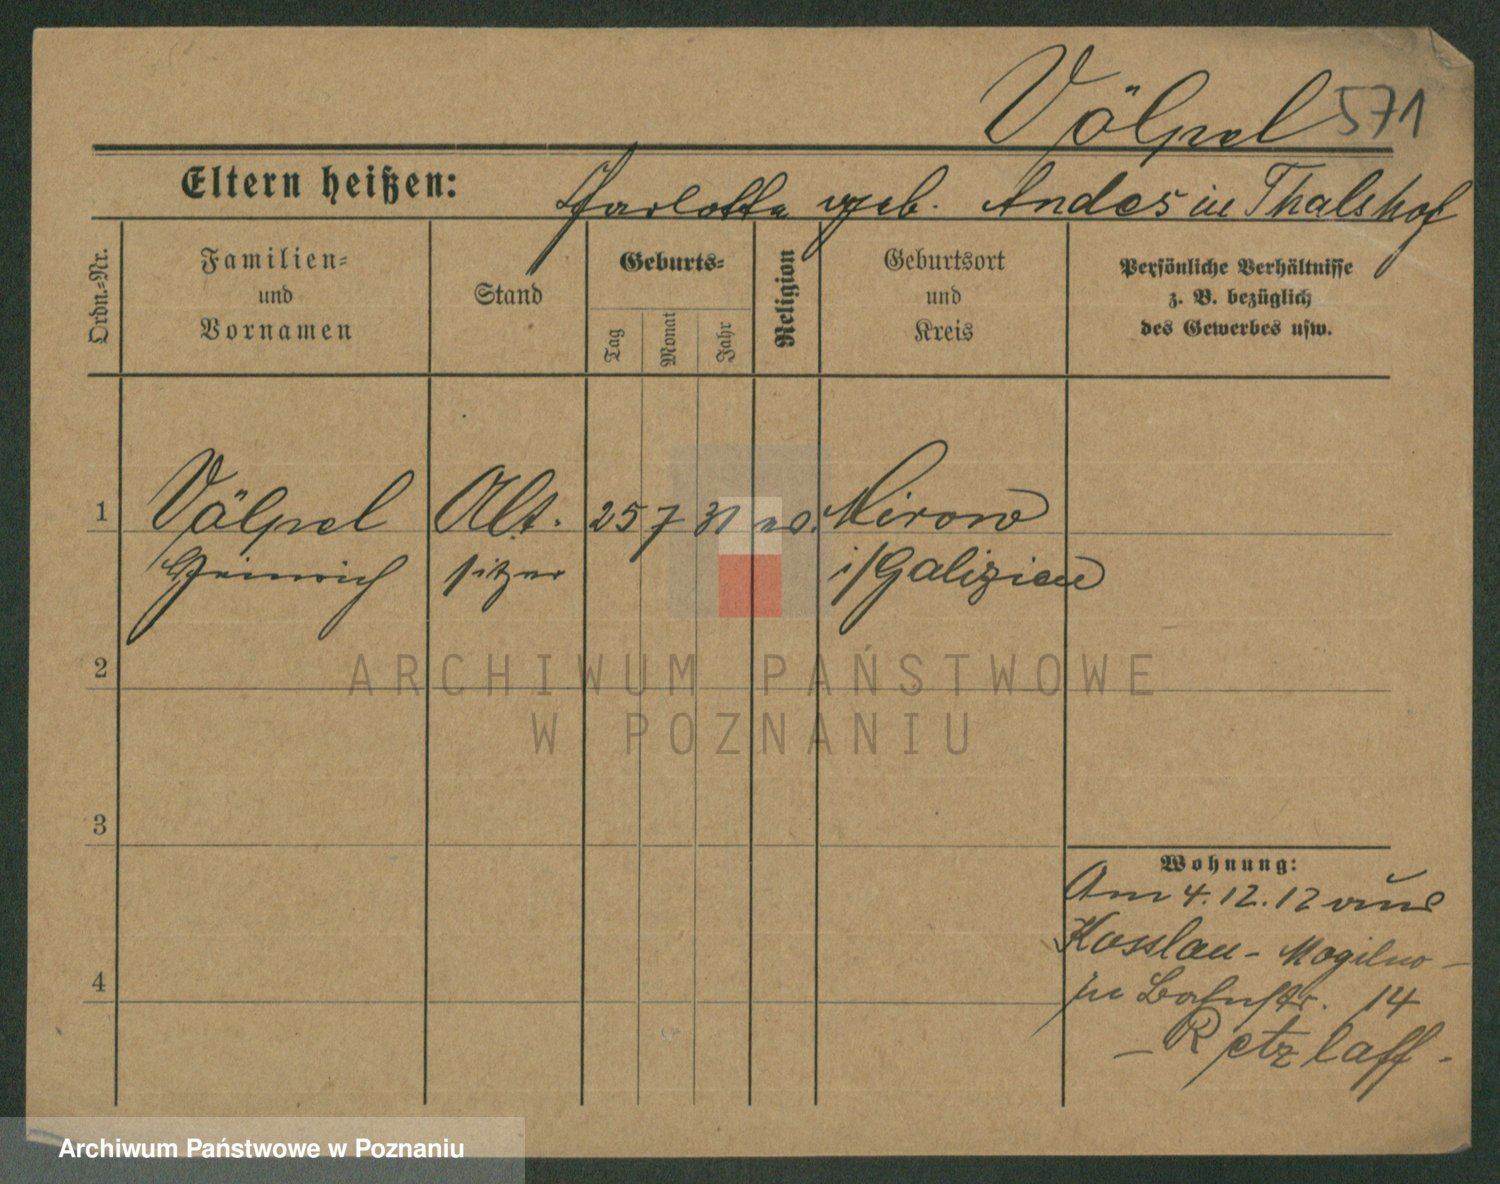 Völpel 571
Eltern heißen: Charlotte geb. Andes in Thalshof
Ordn.-Nr.
Familien=
und
Vornamen
Stand
Geburts=
Tag
Monat
Jahr
Religion
Geburtsort
und
Kreis
Persönliche Verhältnisse
z. B. bezüglich
des Gewerbes usw.
1 Völpel Alt- 25 7 31 ev. Mirow
Heinrich sitzer i/Galizien
2
ARCHIWUM PAŃSTWOWE
W POZNANIU
3
Wohnung:
Am 4.12.12 aus
Kosslau - Mogilno -
in Bahnstr. 14
- Retzlaff -
4
Archiwum Państwowe w Poznaniu